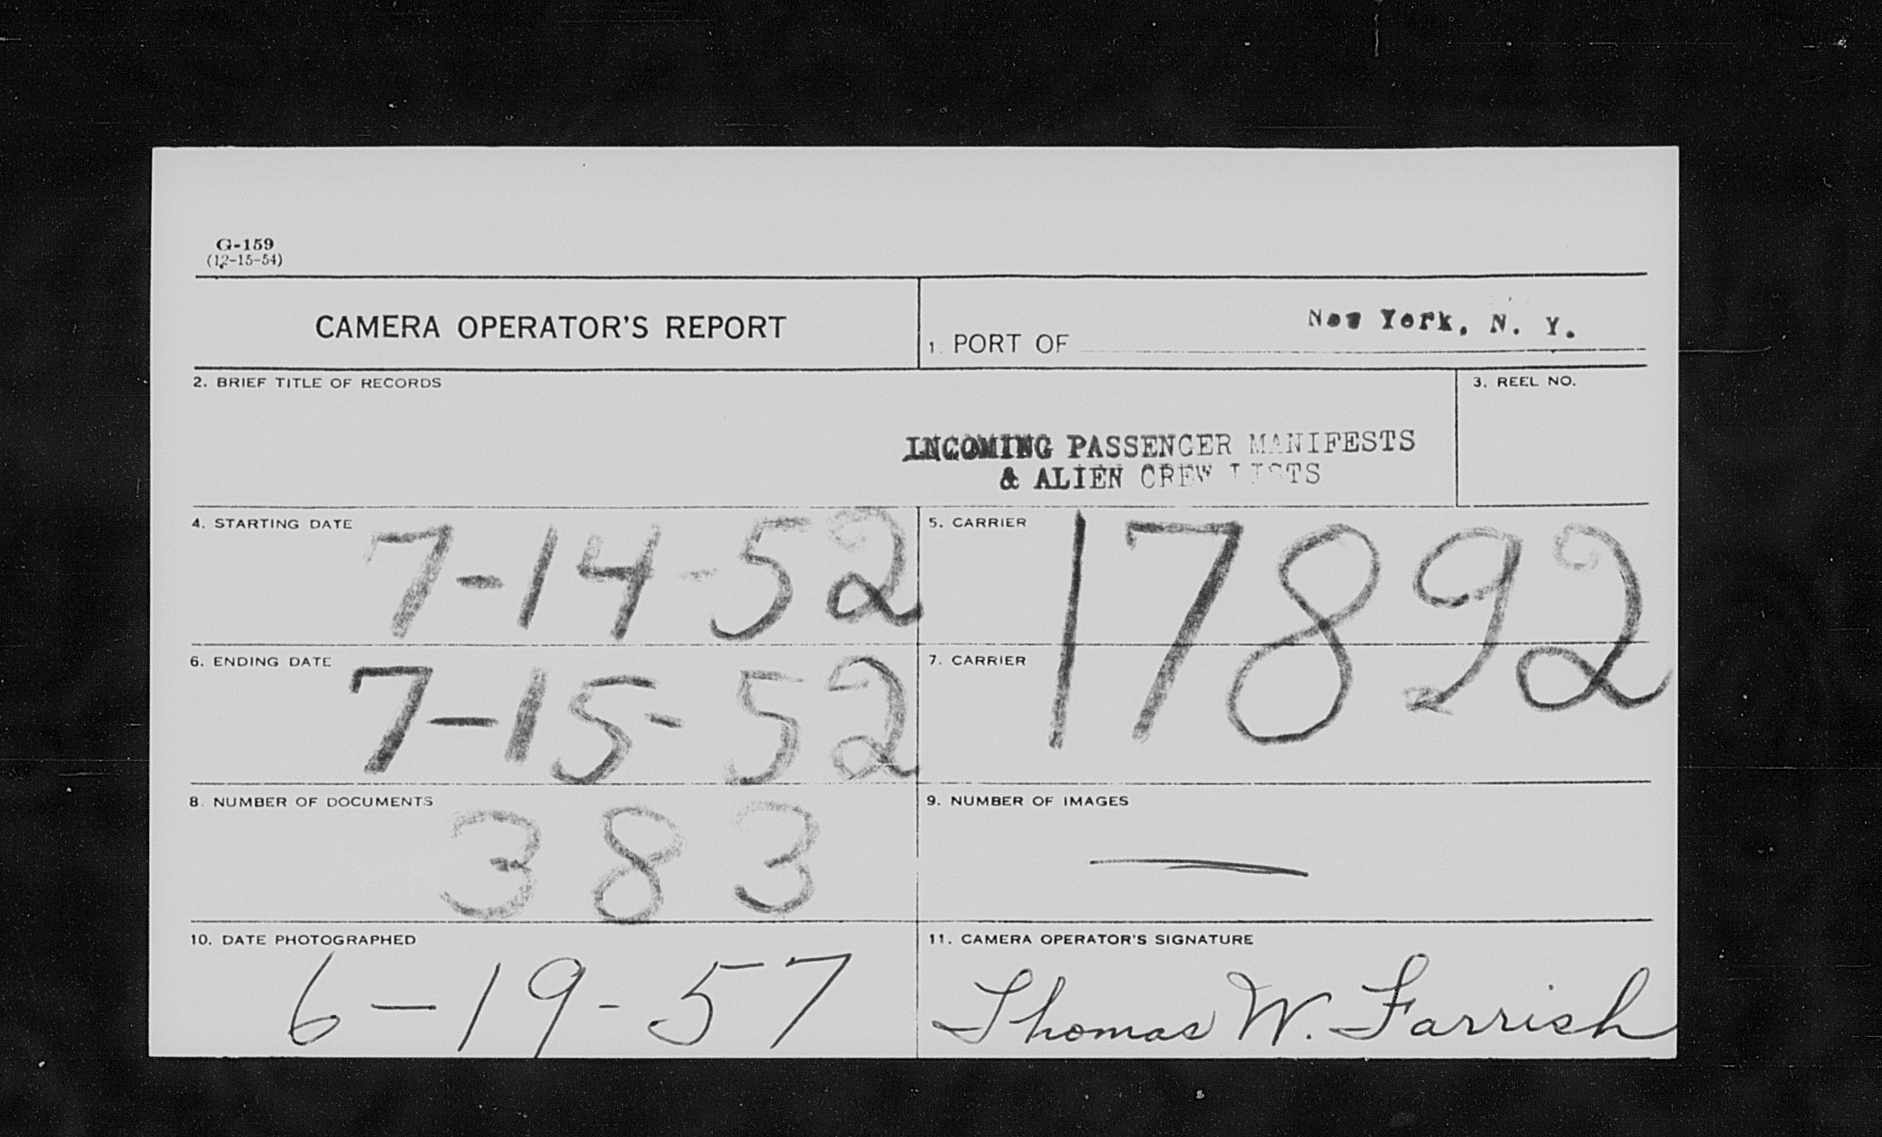 G-159
(12-15-54)
CAMERA OPERATOR'S REPORT
1. PORT OF New York, N. Y.
2. BRIEF TITLE OF RECORDS
INCOMING PASSENGER MANIFESTS
& ALIEN CREW LISTS
3. REEL NO.
4. STARTING DATE 7-14-52
5. CARRIER 17892
6. ENDING DATE 7-15-52
7. CARRIER
8. NUMBER OF DOCUMENTS 383
9. NUMBER OF IMAGES —
10. DATE PHOTOGRAPHED
6-19-57
11. CAMERA OPERATOR'S SIGNATURE
Thomas W. Farrish